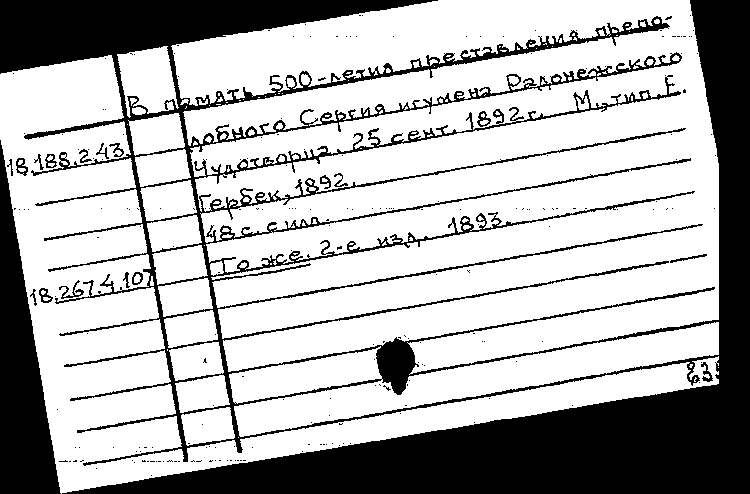 В память 500-летия преставления препо-
18.188.2.43. добного Сергия игумена Радонежского
Чудотворца. 25 сент. 1892 г. М., тип. Г.
Гербек, 1892.
48 с. с илл.
18.267.4.107 То же. 2-е изд. 1893.